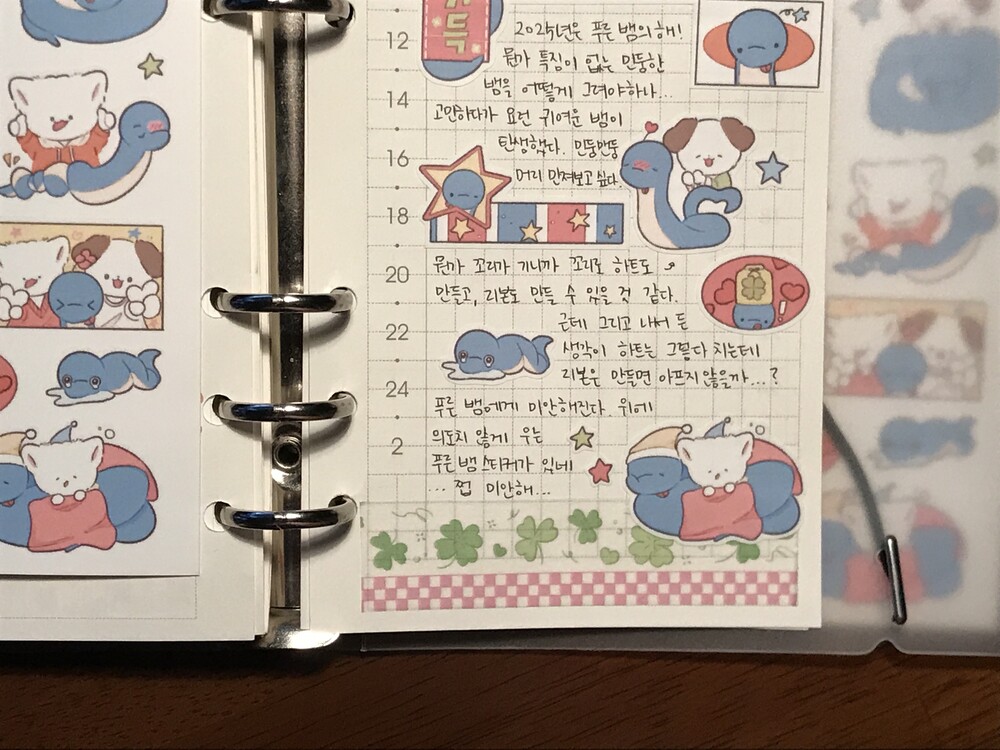 득
12
2025년은 푸른 뱀의 해!
뭔가 특징이 없는 민둥한
14
뱀을 어떻게 그려야하나...
고민하다가 요런 귀여운 뱀이
16
탄생했다. 민둥민둥
머리 만져보고 싶다.
18
20
뭔가 꼬리가 기니까 꼬리로 하트도
만들고, 리본도 만들 수 있을 것 같다.
22
근데 그리고 나서 든
생각이 하트는 그렇다 치는데
24
리본은 만들면 아프지 않을까...?
푸른 뱀에게 미안해진다. 위에
2
의도치 않게 우는
푸른 뱀 스티커가 있네
... 쩝 미안해...